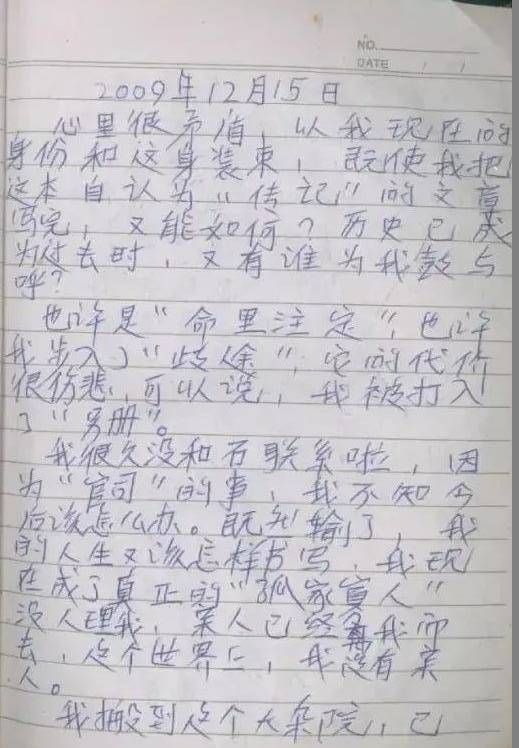 NO.
DATE / /
2009年12月15日
心里很矛盾，以我现在的
身份和这身装束，既使我把
这本自认为“传记”的文章
写完，又能如何？历史已成
为过去时，又有谁为我鼓与
呼？
也许是“命里注定”，也许
我步入了“歧途”，它的代价
很伤悲，可以说，我被打入
了“另册”。
我很久没和石联系啦，因
为“官司”的事，我不知今
后该怎么办。既然输了，我
的人生又该怎样书写，我现
在成了真正的“孤家寡人”
没人理我，某人已经离我而
去，这个世界上，我没有亲
人。
我搬到这个大杂院，已